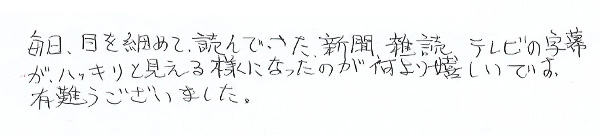 毎日、目を細めて、読んでいた、新聞、雑読、テレビの字幕
が、ハッキリと見える様になったのが何より嬉しいです。
有難うございました。